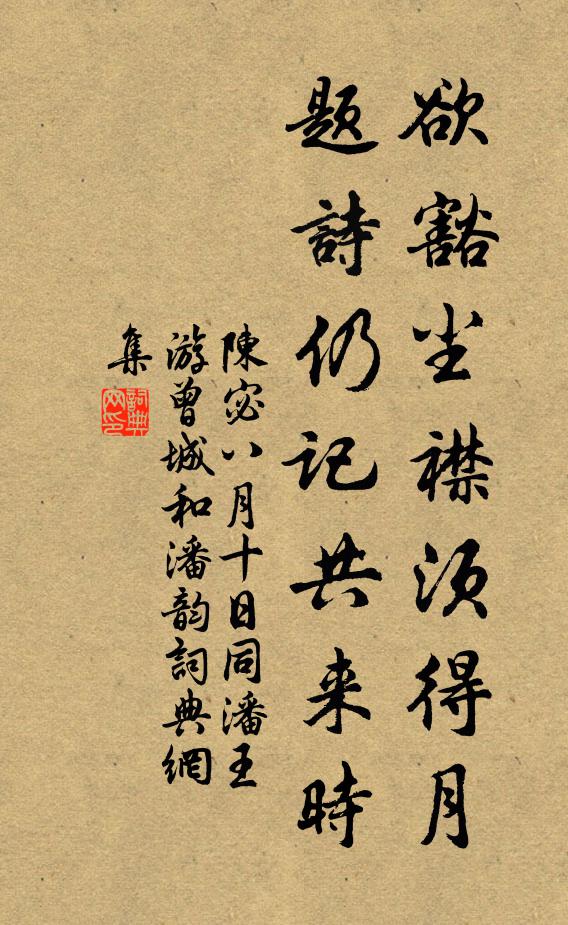 欲豁尘襟须得月
題詩仍记共来時
陳宓八月十日同潘王
游曾城和潘韵詞典網
集
詞典
网印